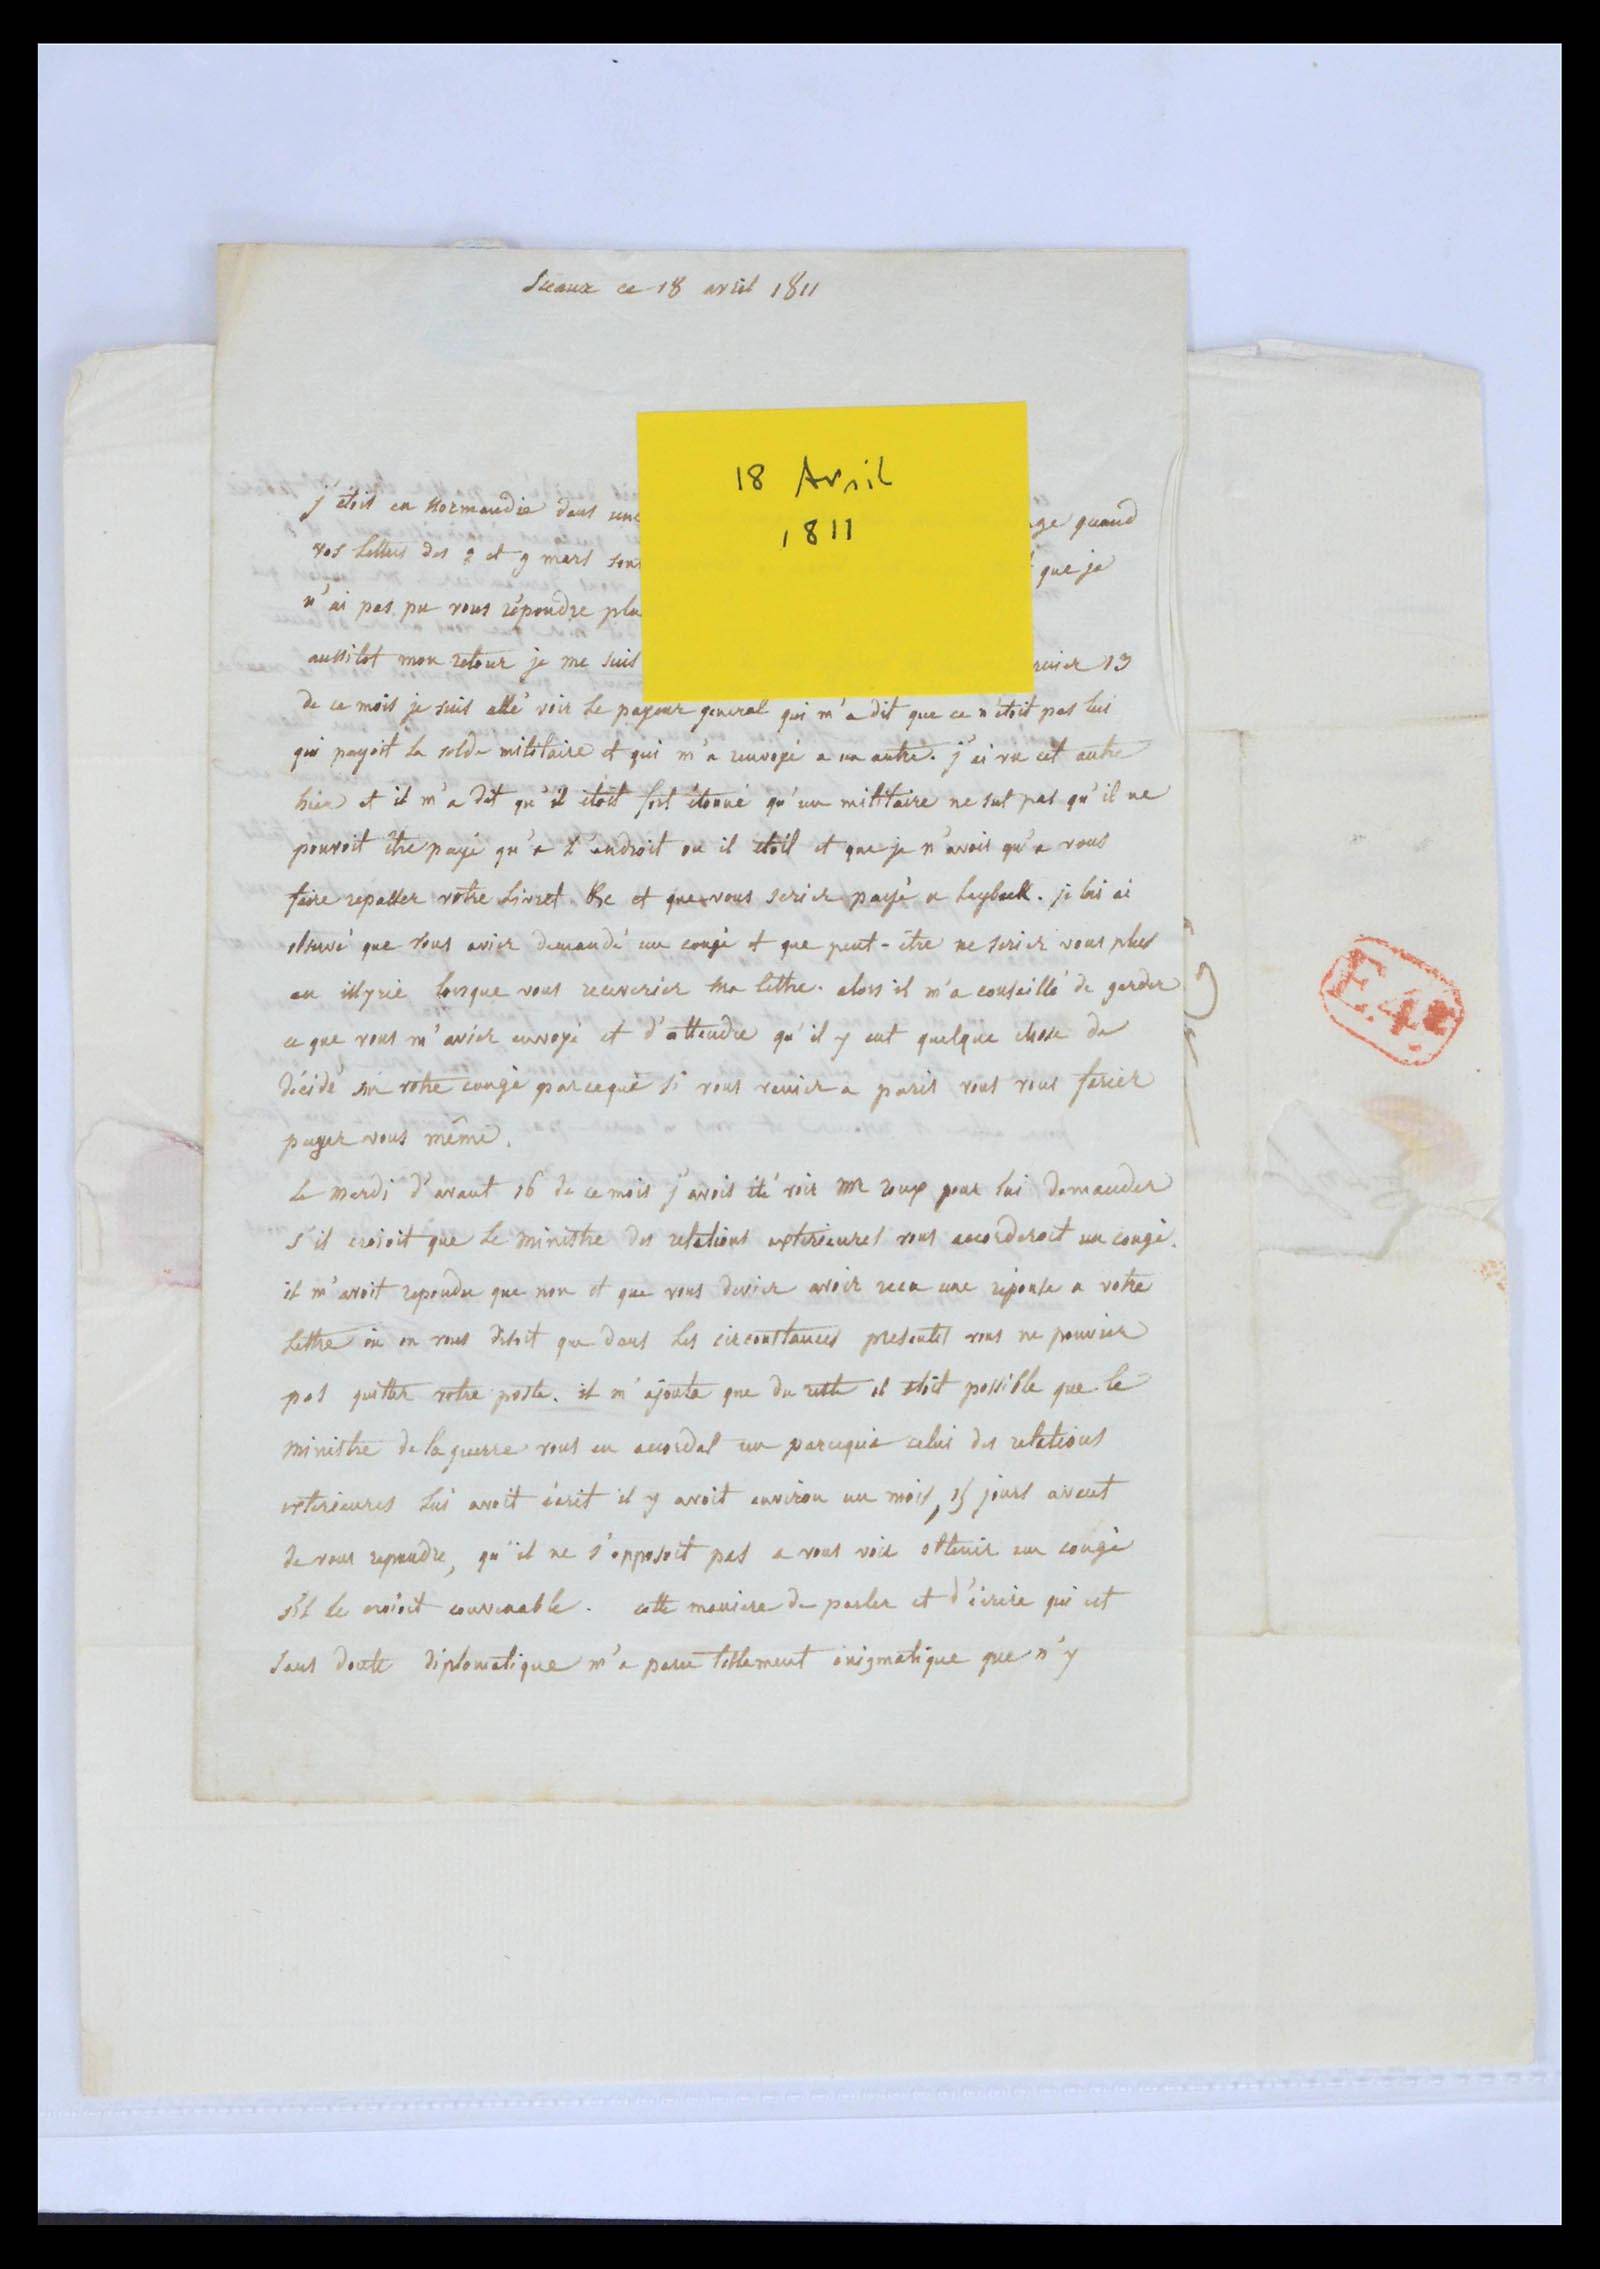 Sceaux ce 18 avril 1811
18 Avril
1811
j'étois en Normandie dans une
quand
vos lettres des 2 et 9 mars
que je
n'ai pas pu vous répondre
aussitot mon retour je me suis
13
de ce mois je suis allé voir le payeur general qui m'a dit que ce n'étoit pas lui
qui payoit la solde militaire et qui m'a renvoyé a un autre. j'ai vu cet autre
hier et il m'a dit qu'il étoit fort étonné qu'un militaire ne sut pas qu'il ne
pouvoit être payé qu'a l'endroit ou il etoit et que je n'avois qu'a vous
faire repasser votre Livret &c et que vous seriez payé a Laybach. je lui ai
observé que vous aviez demandé un congé et que peut-être ne seriez vous plus
en illyrie lorsque vous receveriez ma lettre. alors il m'a conseillé de garder
ce que vous m'aviez envoyé et d'attendre qu'il y eut quelque chose de
décidé sur votre congé parceque si vous veniez a paris vous vous feriez
payer vous même.
Le mardi d'avant 16 de ce mois j'avois été voir Mr roux pour lui demander
s'il croioit que le ministre des relations exterieures vous accorderoit un congé.
il m'avoit repondu que non et que vous deviez avoir recu une réponse a votre
Lettre où on vous disoit que dans les circonstances presentes vous ne pouviez
pas quitter votre poste. il m'ajouta que du reste il étoit possible que le
ministre de la guerre vous en accordat un parceque celui des relations
exterieures lui avoit écrit il y avoit environ un mois, 15 jours avant
de vous repondre, qu'il ne s'opposoit pas a vous voir obtenir un congé
s'il le croioit convenable. cette maniere de parler et d'écrire qui est
sans doute diplomatique m'a paru tellement énigmatique que n'y